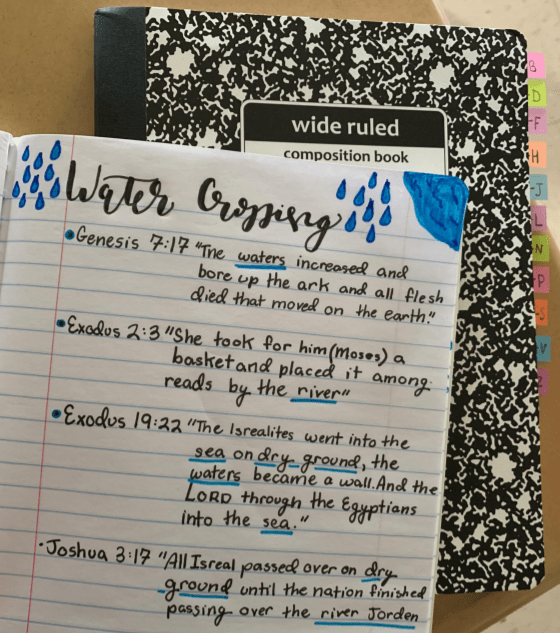 wide ruled
composition book
B
D
-F
H
-J
L
-N
-P
-S
Water Crossing
Genesis 7:17 "The waters increased and
bore up the ark and all flesh
died that moved on the earth."
Exodus 2:3 "She took for him (Moses) a
basket and placed it among
reads by the river"
Exodus 19:22 "The Isrealites went into the
sea on dry ground, the
waters became a wall. And the
LORD through the Egyptians
into the sea."
Joshua 3:17 "All Isreal passed over on dry
ground until the nation finished
passing over the river Jorden